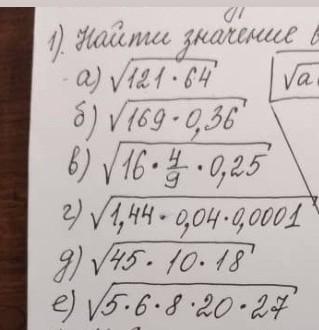 1). Найти значение в
а) √121 · 64
√а
б) √169 · 0,36
в) √16 · 4/9 · 0,25
г) √1,44 · 0,04 · 0,0001
д) √45 · 10 · 18
е) √5 · 6 · 8 · 20 · 27